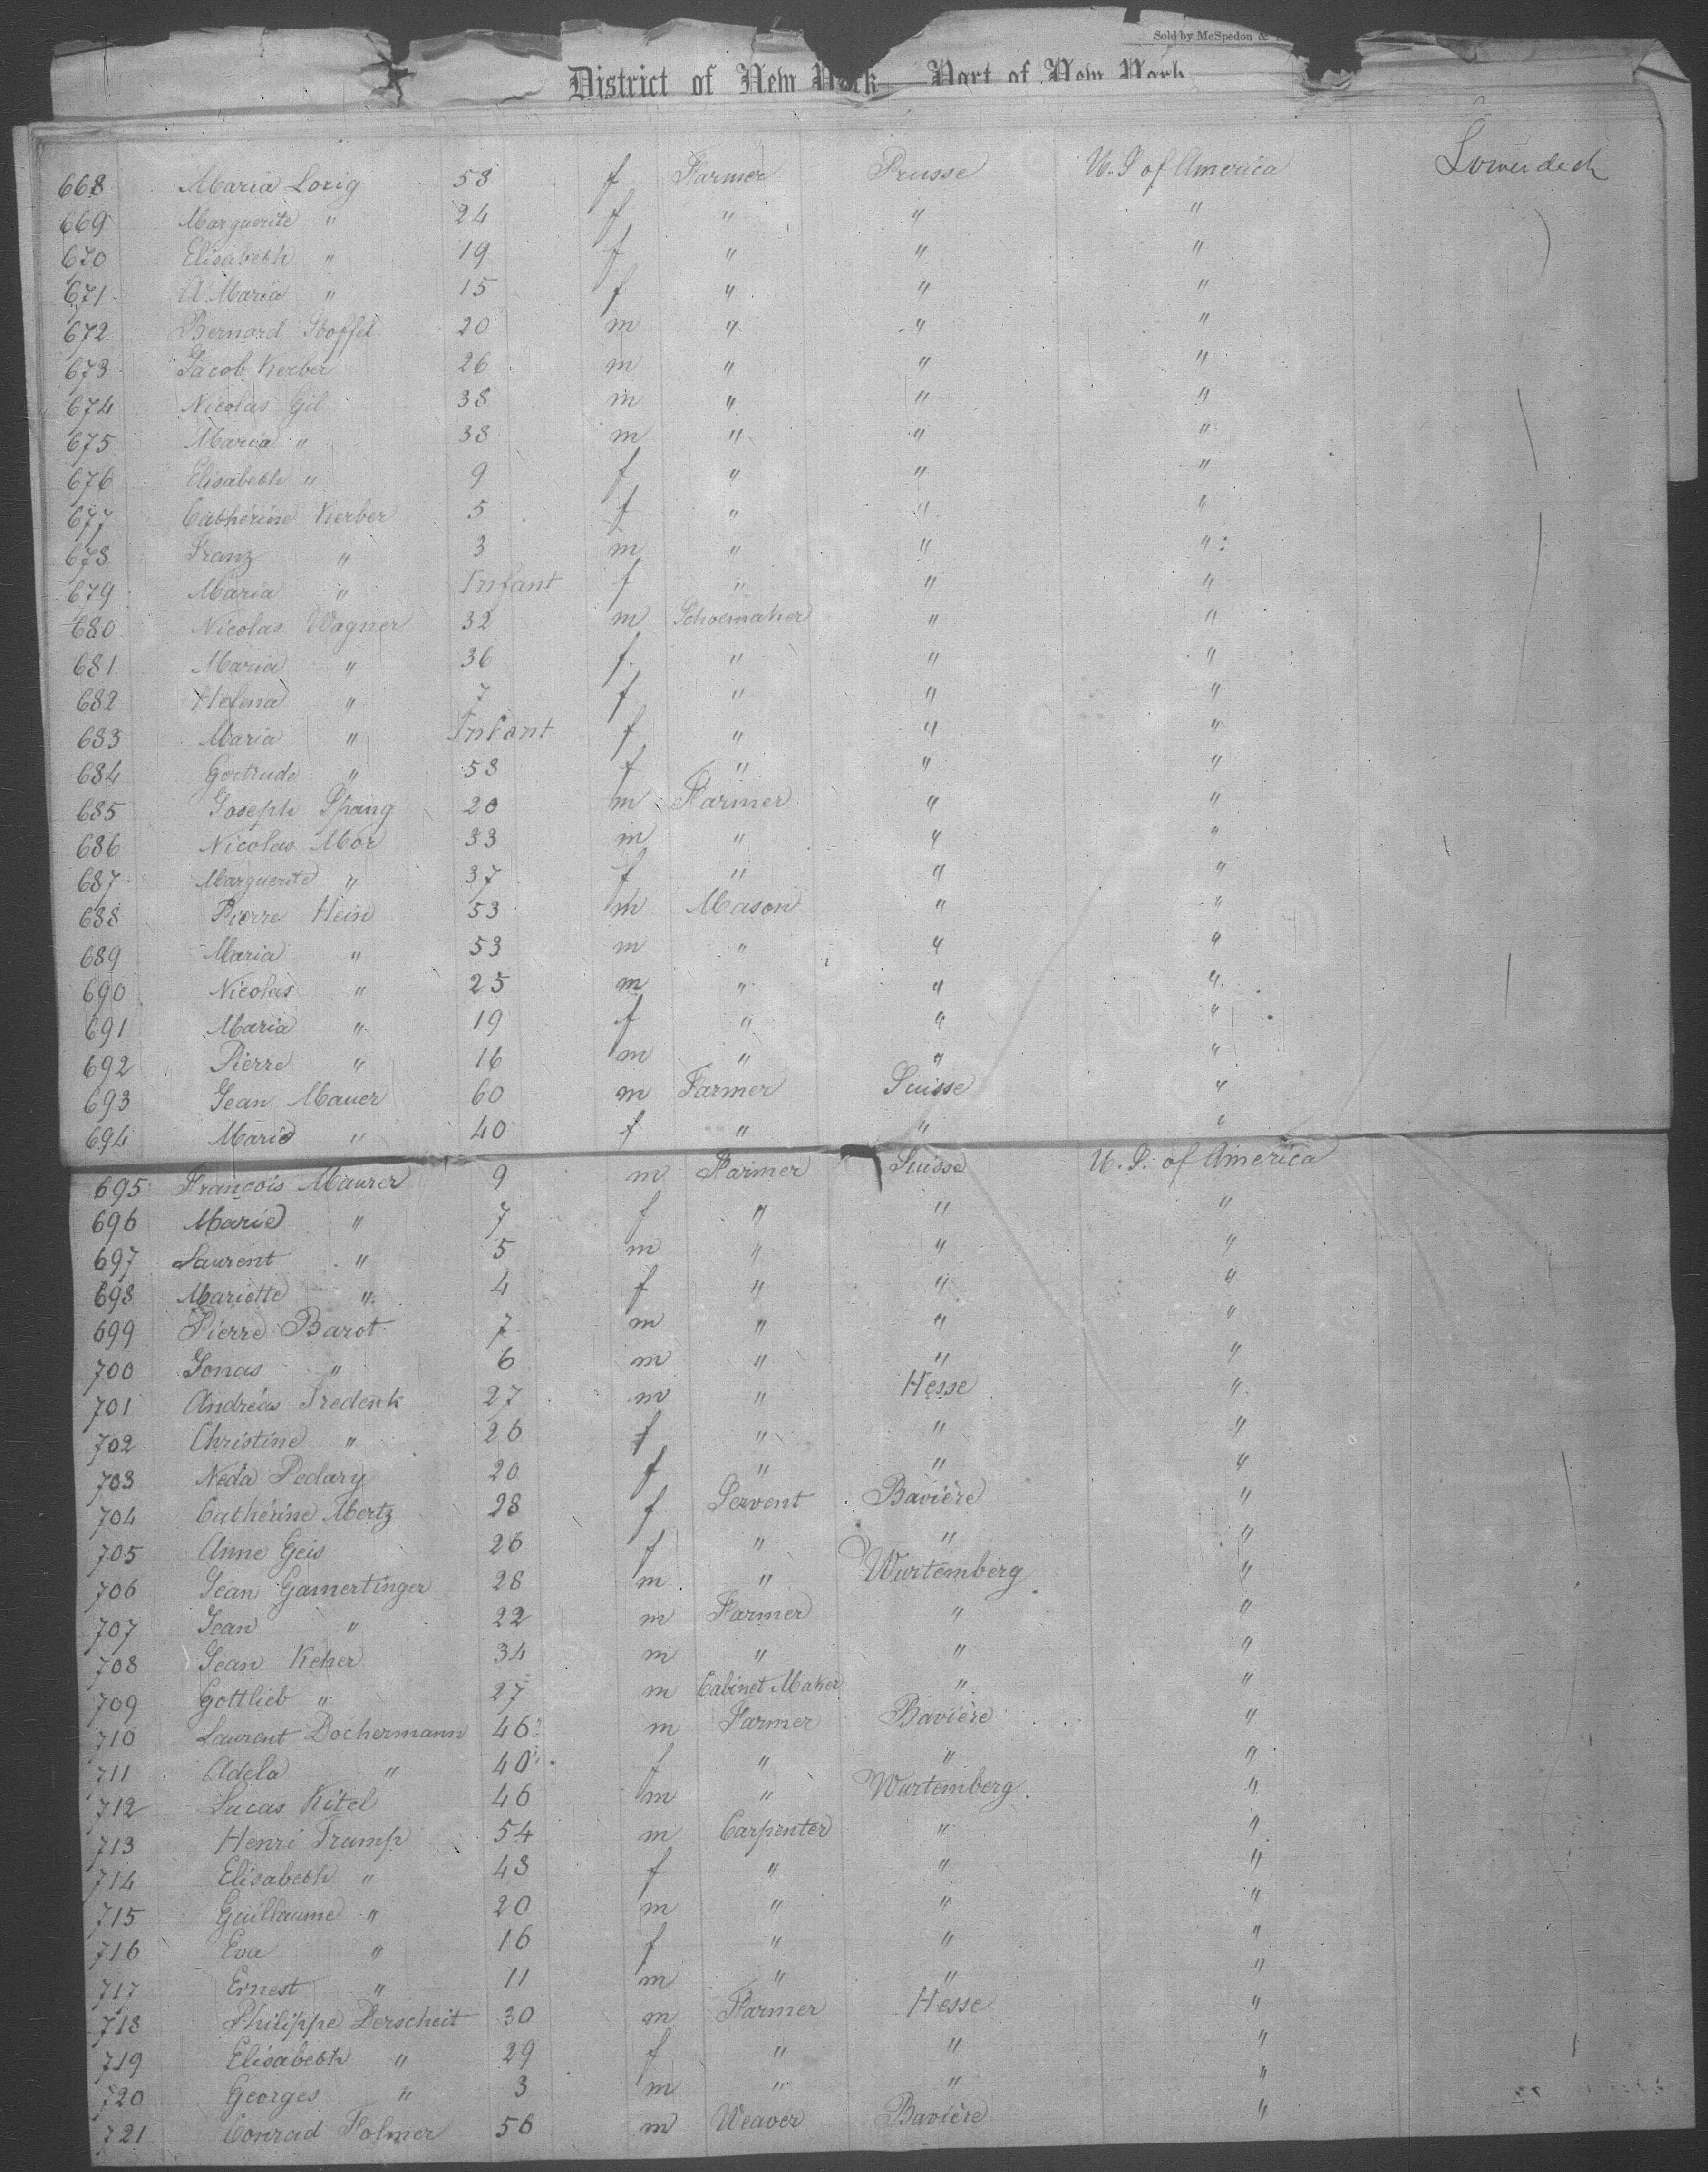 Sold by McSpedon &
District of New York — Port of New York
668 Maria Lorig 58 f Farmer Prusse U. S of America Lowerdeck
669 Marguerite " 24 f " " "
670 Elisabeth " 19 f " " "
671 A. Maria " 15 f " " "
672 Bernard Stoffel 20 m " " "
673 Jacob Kerber 26 m " " "
674 Nicolas Gil 38 m " " "
675 Maria " 38 m " " "
676 Elisabeth " 9 f " " "
677 Cathérine Kerber 5 f " " "
678 Franz " 3 m " " "
679 Maria " Infant f " " "
680 Nicolas Wagner 32 m Schoemaker " "
681 Maria " 36 f " " "
682 Helena " 7 f " " "
683 Maria " Infant f " " "
684 Gertrude " 58 f " " "
685 Joseph Spang 20 m Farmer " "
686 Nicolas Mor 33 m " " "
687 Marguerite " 37 f " " "
688 Pierre Hein 53 m Mason " "
689 Maria " 53 m " " "
690 Nicolas " 25 m " " "
691 Maria " 19 f " " "
692 Pierre " 16 m " " "
693 Jean Mauer 60 m Farmer Suisse "
694 Marie " 40 f " " "
695 François Maurer 9 m Farmer Suisse U. S. of America
696 Marie " 7 f " " "
697 Laurent " 5 m " " "
698 Mariette " 4 f " " "
699 Pierre Barot 7 m " " "
700 Jonas " 6 m " " "
701 Andréas Frederik 27 m " Hesse "
702 Christine " 26 f " " "
703 Neda Pedary 20 f " " "
704 Cathérine Mertz 28 f Servent Bavière "
705 Anne Geis 26 f " " "
706 Jean Gamertinger 28 m " Wurtemberg "
707 Jean " 22 m Farmer " "
708 Jean Keher 34 m " " "
709 Gottlieb " 27 m Cabinet Maker " "
710 Laurent Dochermann 46 m Farmer Bavière "
711 Adela " 40 f " " "
712 Lucas Kitel 46 m " Wurtemberg "
713 Henri Trump 54 m Carpenter " "
714 Elisabeth " 48 f " " "
715 Guillaume " 20 m " " "
716 Eva " 16 f " " "
717 Ernest " 11 m " " "
718 Philippe Derscheit 30 m Farmer Hesse "
719 Elisabeth " 29 f " " "
720 Georges " 3 m " " "
721 Conrad Folmer 56 m Weaver Bavière "